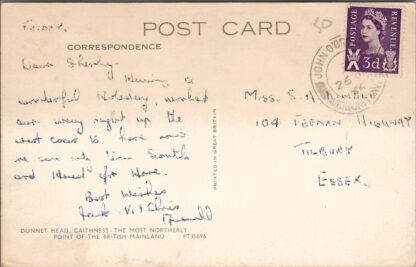 Friday.
POST CARD
50
CORRESPONDENCE
Dear Shirley
Having a
wonderful Holiday, worked
our way right up the
west coast to here now
we can only turn South
and Head for Home.
Best Wishes
Jack Vi & Chris
POSTAGE
REVENUE
3d
JOHN O'
26
Miss. S
104 Feenan Highway
Tilbury
Essex.
PRINTED IN GREAT BRITAIN
DUNNET HEAD, CAITHNESS - THE MOST NORTHERLY
POINT OF THE BRITISH MAINLAND
PT35596